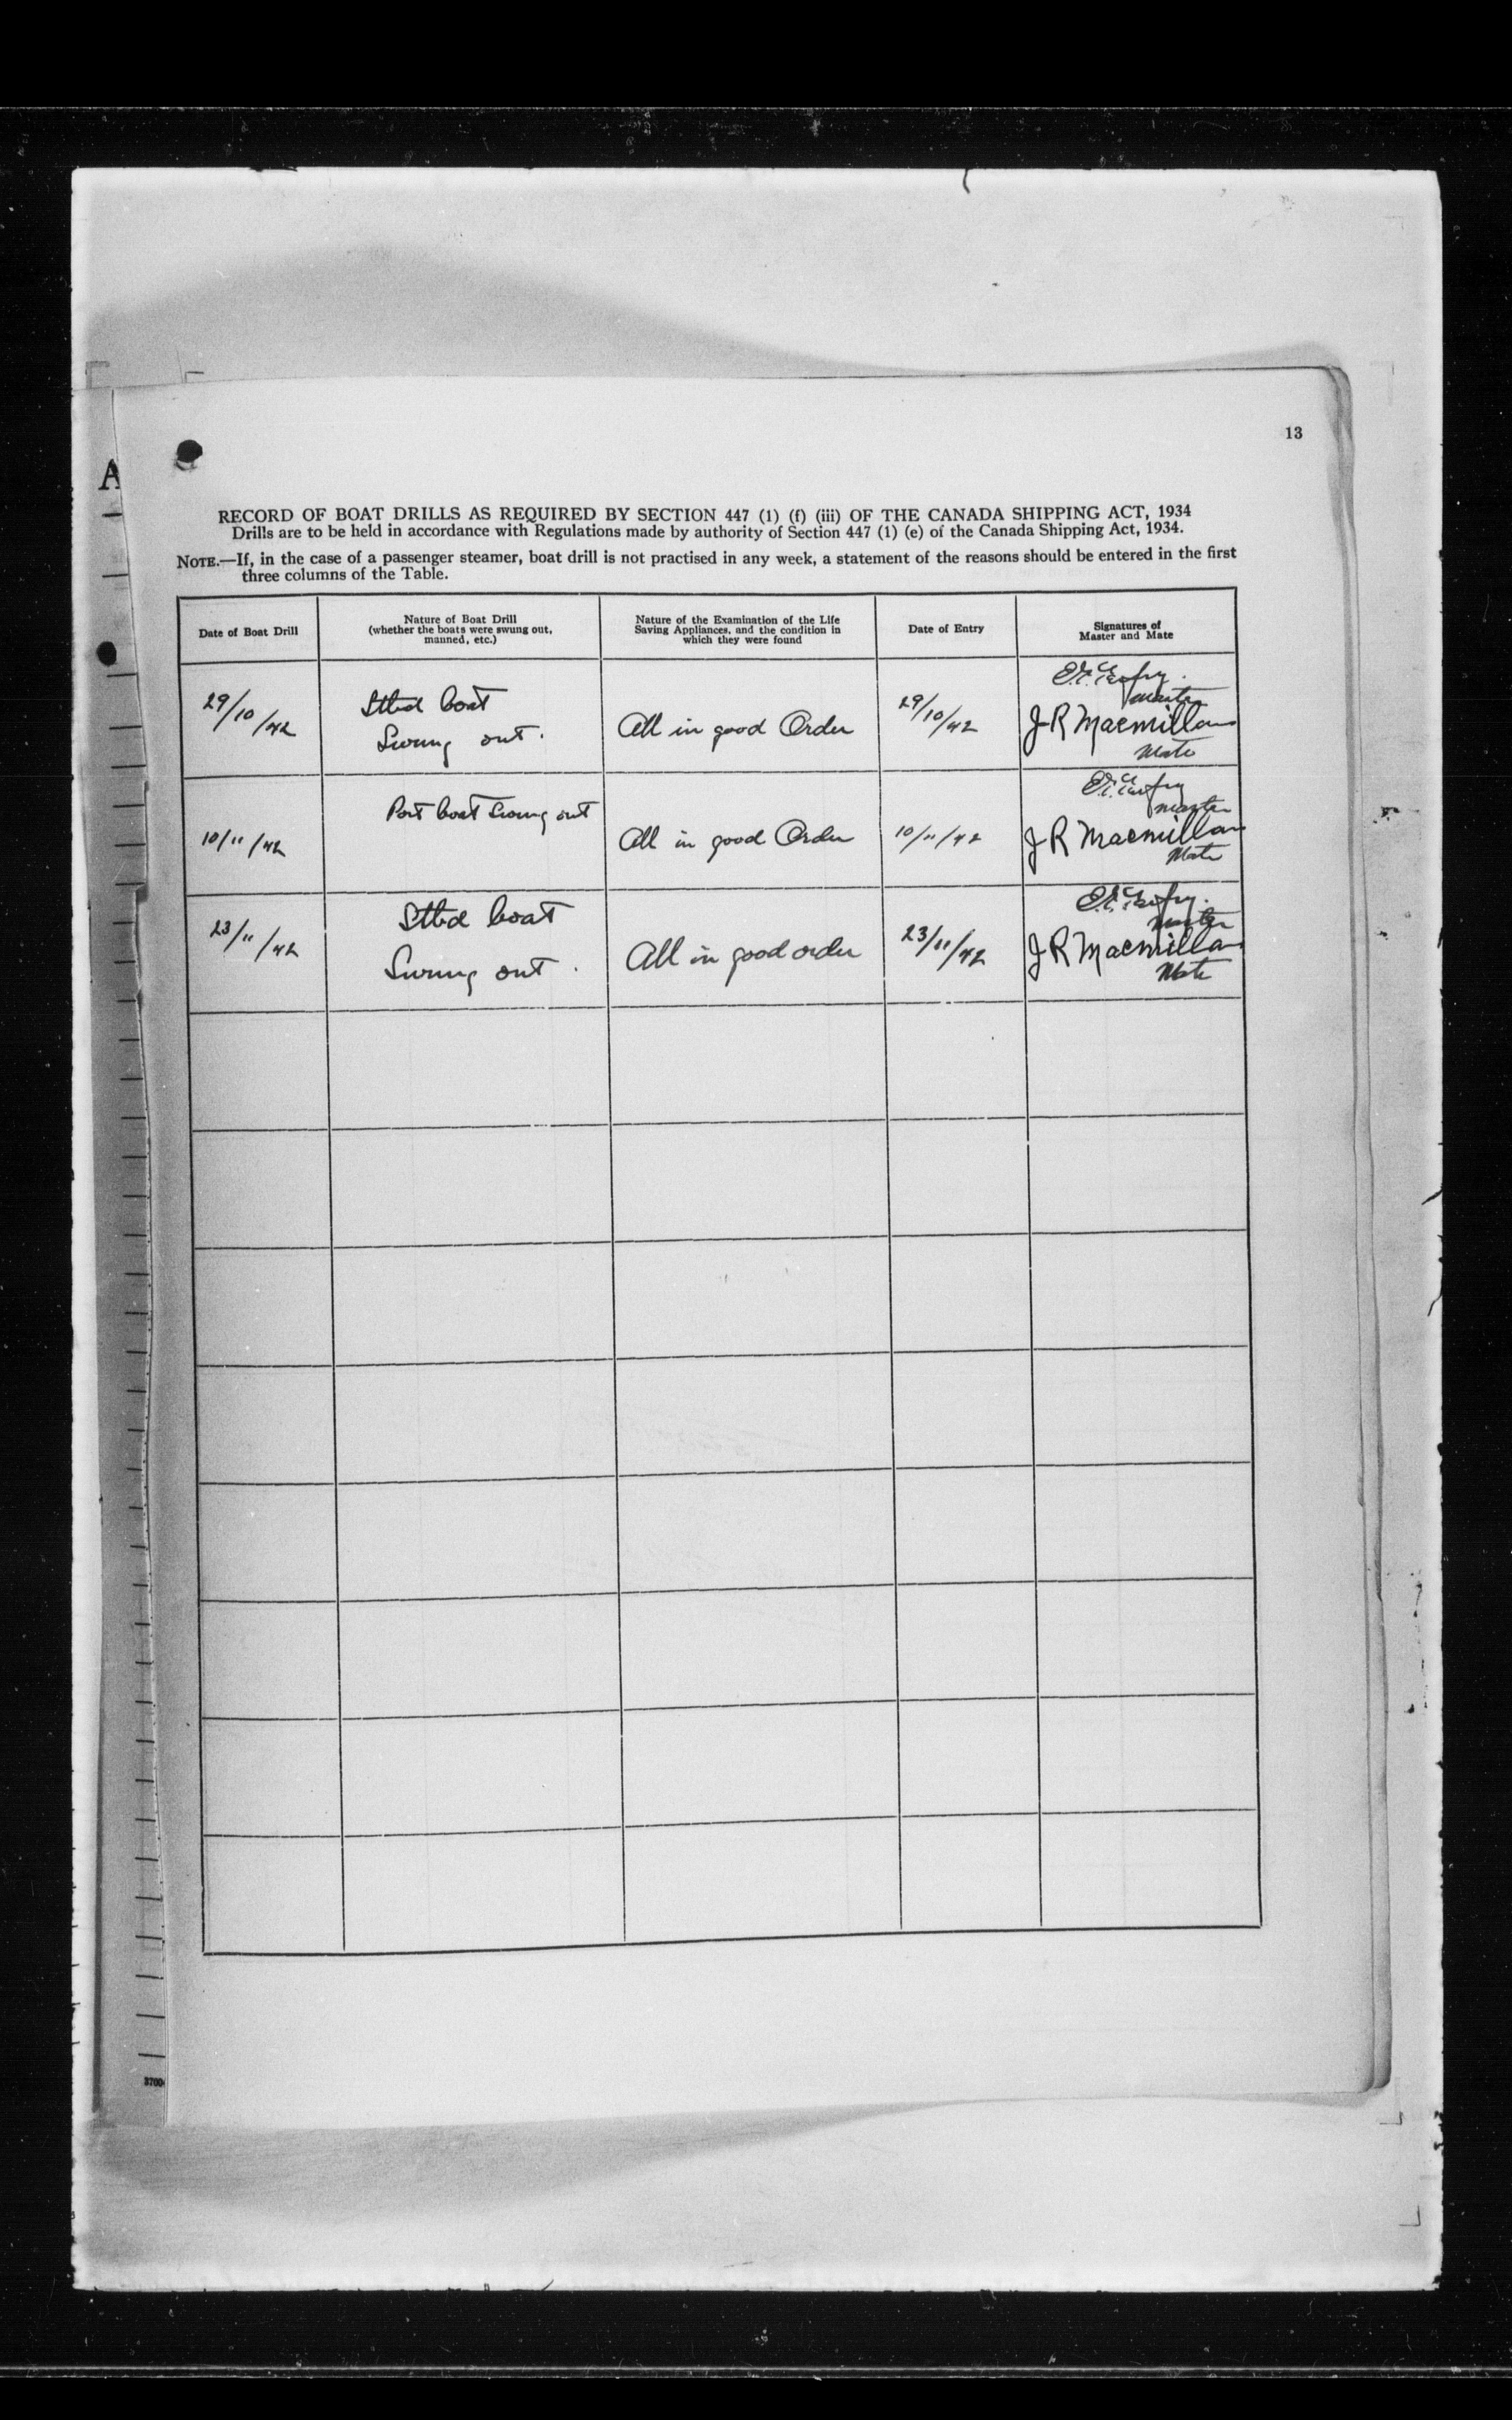 13
A
RECORD OF BOAT DRILLS AS REQUIRED BY SECTION 447 (1) (f) (iii) OF THE CANADA SHIPPING ACT, 1934
Drills are to be held in accordance with Regulations made by authority of Section 447 (1) (e) of the Canada Shipping Act, 1934.
NOTE.—If, in the case of a passenger steamer, boat drill is not practised in any week, a statement of the reasons should be entered in the first
three columns of the Table.
Date of Boat Drill
Nature of Boat Drill
(whether the boats were swung out,
manned, etc.)
Nature of the Examination of the Life
Saving Appliances, and the condition in
which they were found
Date of Entry
Signatures of
Master and Mate
29/10/42
Stbd boat
Swung out.
All in good Order
29/10/42
master
J R Macmillan
Mate
10/11/42
Port boat Swung out
All in good Order
10/11/42
master
J R Macmillan
Mate
23/11/42
Stbd boat
Swung out.
All in good order
23/11/42
master
J R Macmillan
Mate
3700